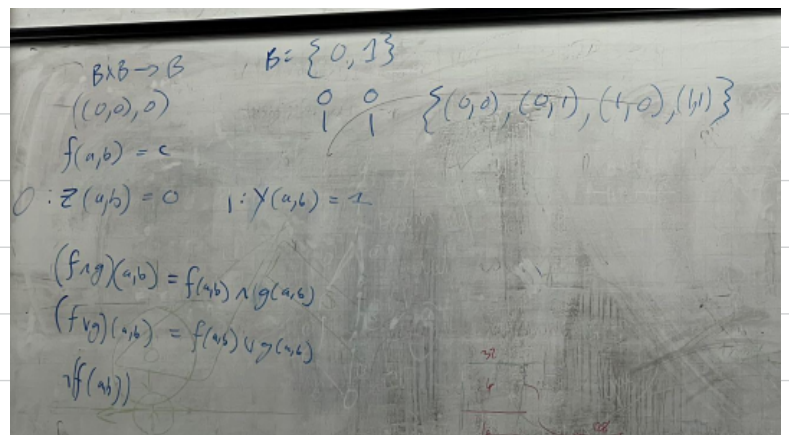 B×B→B B = {0, 1}
((0,0),0) 0 0 {(0,0), (0,1), (1,0), (1,1)}
1 1
f(a,b) = c
0 : Z(a,b) = 0 1 : Y(a,b) = 1
(f∧g)(a,b) = f(a,b) ∧ g(a,b)
(f∨g)(a,b) = f(a,b) ∨ g(a,b)
¬f(a,b))